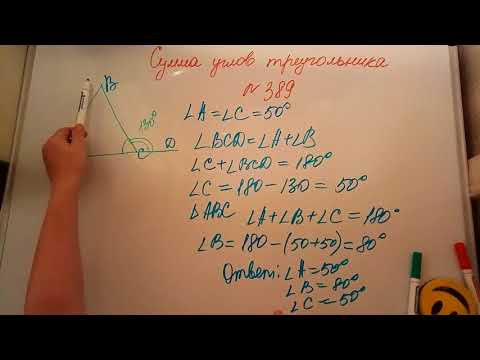 Сумма углов треугольника
N 389
B
130°
C
D
∠A=∠C=50°
∠BCD=∠A+∠B
∠C+∠BCD=180°
∠C=180-130=50°
△ABC ∠A+∠B+∠C=180°
∠B=180-(50+50)=80°
Ответ: ∠A=50°
∠B=80°
∠C=50°